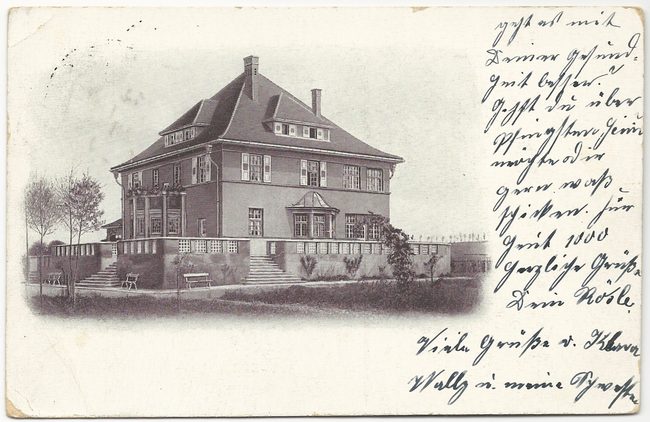 geht es mit
Deiner Gesund-
heit besser?
Gehst du über
Pfingsten heim
möchte dir
gern was
schicken. Für
heut 1000
herzliche Grüße
Dein Rösle.
Viele Grüße v. Klara
Wally u. meine Schwester